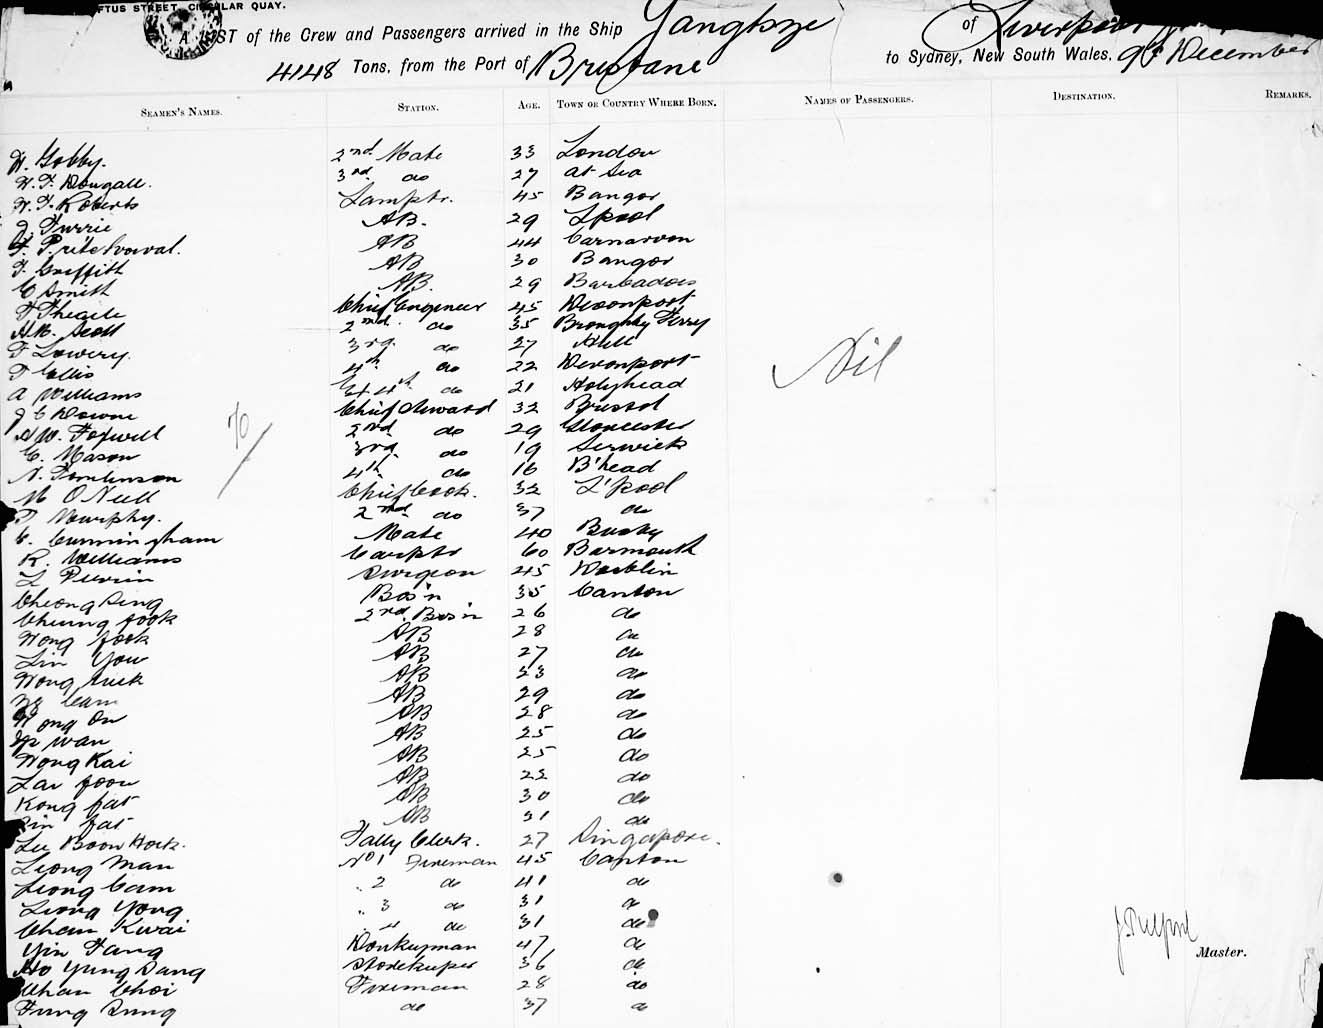 FTUS STREET, CIRCULAR QUAY.
A LIST of the Crew and Passengers arrived in the Ship Yangtsze of Liverpool
4148 Tons, from the Port of Brisbane to Sydney, New South Wales, 9th December
SEAMEN'S NAMES. STATION. AGE. TOWN OR COUNTRY WHERE BORN. NAMES OF PASSENGERS. DESTINATION. REMARKS.
H. Gobby. 2nd Mate 33 London
W. F. Dougall. 3rd do 27 at Sea
W. T. Roberts Lamptr. 45 Bangor
J. Furrie AB. 29 Lpool
AB 44 Carnarvon
T. Griffith AB 30 Bangor
C Smith AB. 29 Barbadoes
T Theaile Chief Engineer 45 Devonport
H.B. Scott 2nd. do 35 Broughty Ferry
F Lowery. 3rd do 27 Hull
T Ellis 4th do 22 Devonport
A Williams Ex 4th do 21 Holyhead
J C Downe Chief Steward 32 Bristol
A W. Foxwell 2nd do 29 Gloucester
C. Mason 3rd do 19 Lerwick
N. Tomlinson 4th do 16 B'head
M O'Neill Chief Cook. 32 L'pool
T Murphy. 2nd do 37 do
C. Cunningham Mate 40 Busby
R. Williams Carptr 60 Barmouth
L Perrin Surgeon 45 Dublin
Cheong Sing Bos'n 35 Canton
Cheung fook 2nd Bos'n 26 do
Wong fook AB 28 do
Lin You AB 27 do
Wong Suck AB 23 do
Ng Cam AB 29 do
Wong On AB 28 do
Ip Wan AB 25 do
Wong Kai AB 25 do
Lai foon AB 22 do
Kong fat AB 30 do
Sin fat AB 31 do
Lee Boon Hock. Tally Clerk. 27 Singapore.
Leong Man No 1 Fireman 45 Canton
Leong Cam " 2 do 41 do
Leong Yong " 3 do 31 do
Chan Kwai " 4 do 31 do
Yin Tang Donkeyman 47 do
Ho Yung Sang Storekeeper 36 do
Chan Choi Fireman 28 do
Fung Sung do 37 do
Nil
J. Pulford
Master.